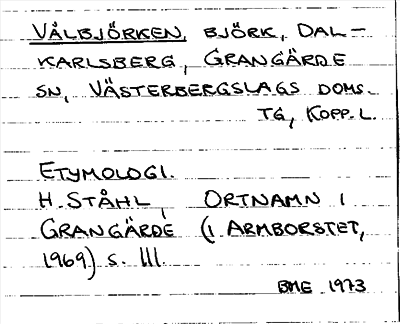 VÅLBJÖRKEN, BJÖRK, DAL-
KARLSBERG, GRANGÄRDE
SN, VÄSTERBERGSLAGS DOMS.
TG, KOPP. L.
ETYMOLOGI.
H. STÅHL, ORTNAMN I
GRANGÄRDE (I ARMBORSTET,
1969) S. 111.
BME 1973